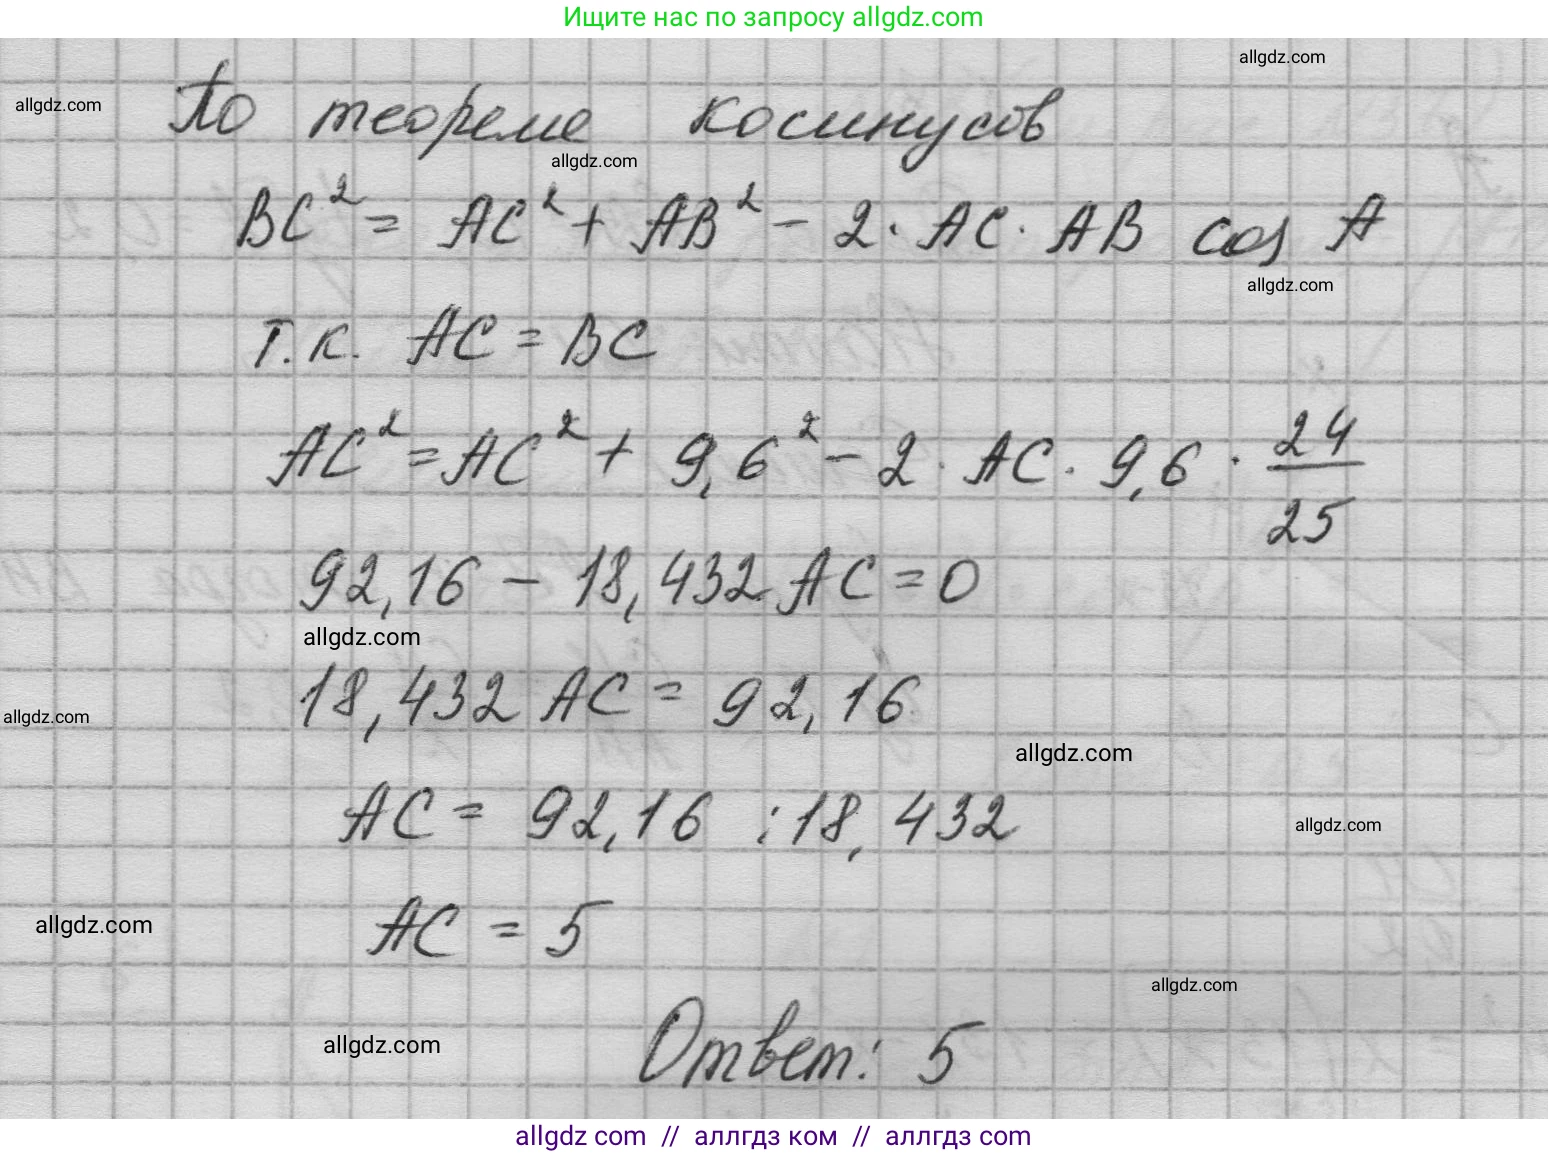 Ищите нас по запросу allgdz.com
allgdz.com
allgdz.com
По теореме косинусов
allgdz.com
BC² = AC² + AB² - 2 · AC · AB cos A
allgdz.com
т.к. AC = BC
AC² = AC² + 9,6² - 2 · AC · 9,6 · 24/25
92,16 - 18,432 AC = 0
allgdz.com
18,432 AC = 92,16
allgdz.com
allgdz.com
AC = 92,16 : 18,432
allgdz.com
AC = 5
allgdz.com
allgdz.com
Ответ: 5
allgdz.com
allgdz com // аллгдз ком // аллгдз com